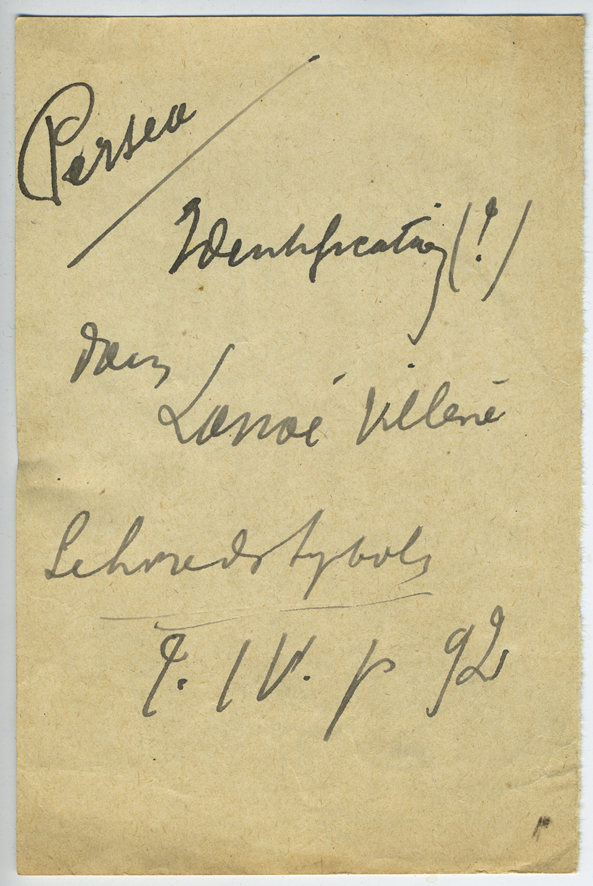 Perseo
Identification (?)
dans
Lanoé Villène
Le livre des Symbols
T. IV. p 92